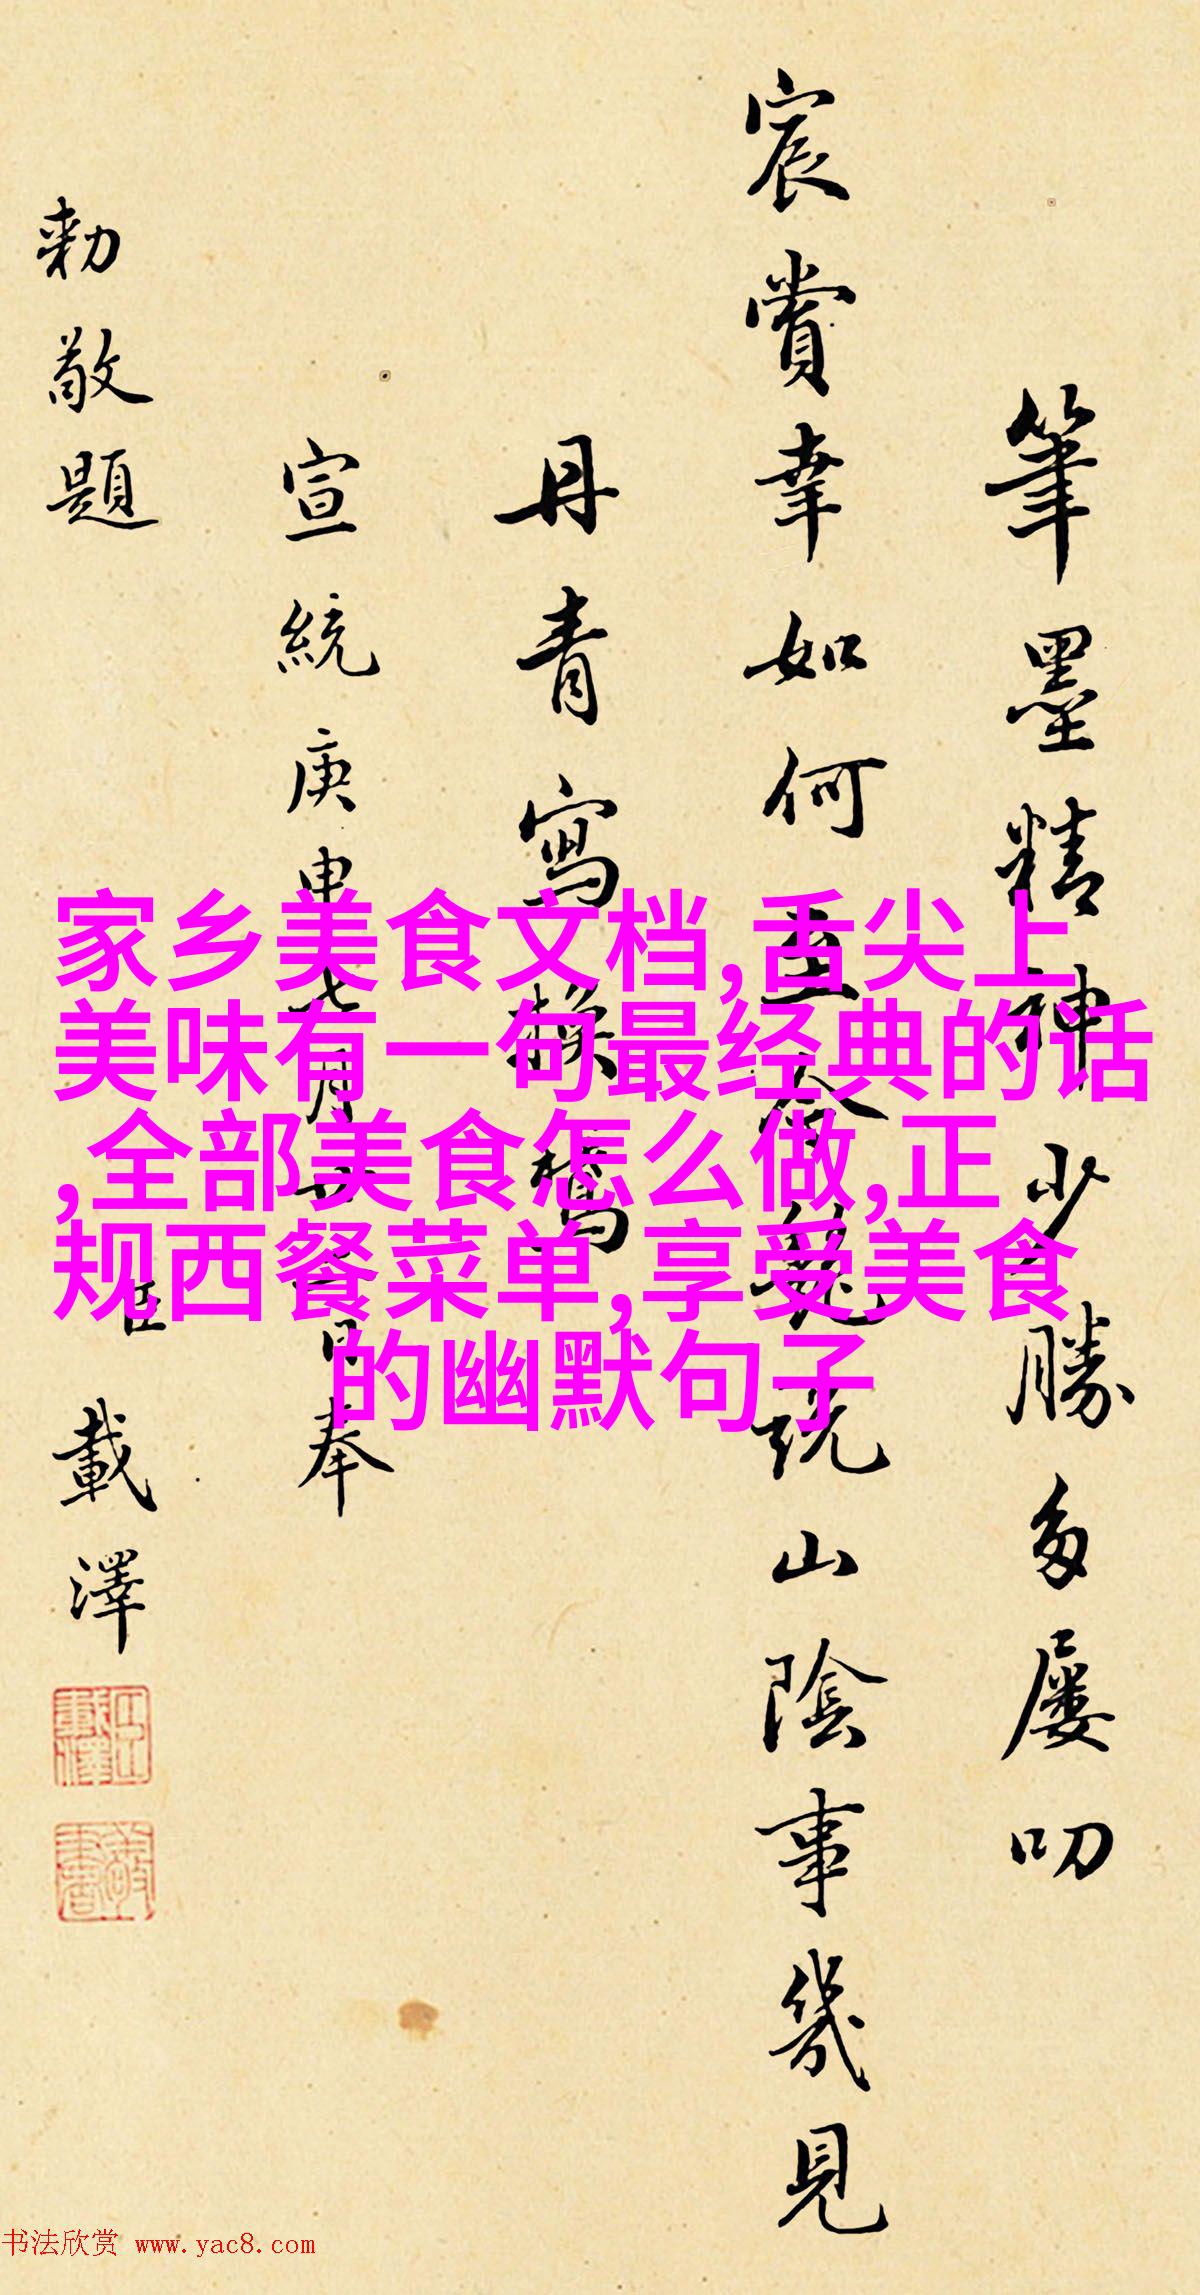 筆墨精神少勝多屢叨
宸賞幸如何
山陰事幾見
丹青寫換鵞
宣統庚申
奉
勅敬題
臣載澤
家乡美食文档,舌尖上
美味有一句最经典的话
,全部美食怎么做,正
规西餐菜单,享受美食
的幽默句子
书法欣赏 www.yac8.com